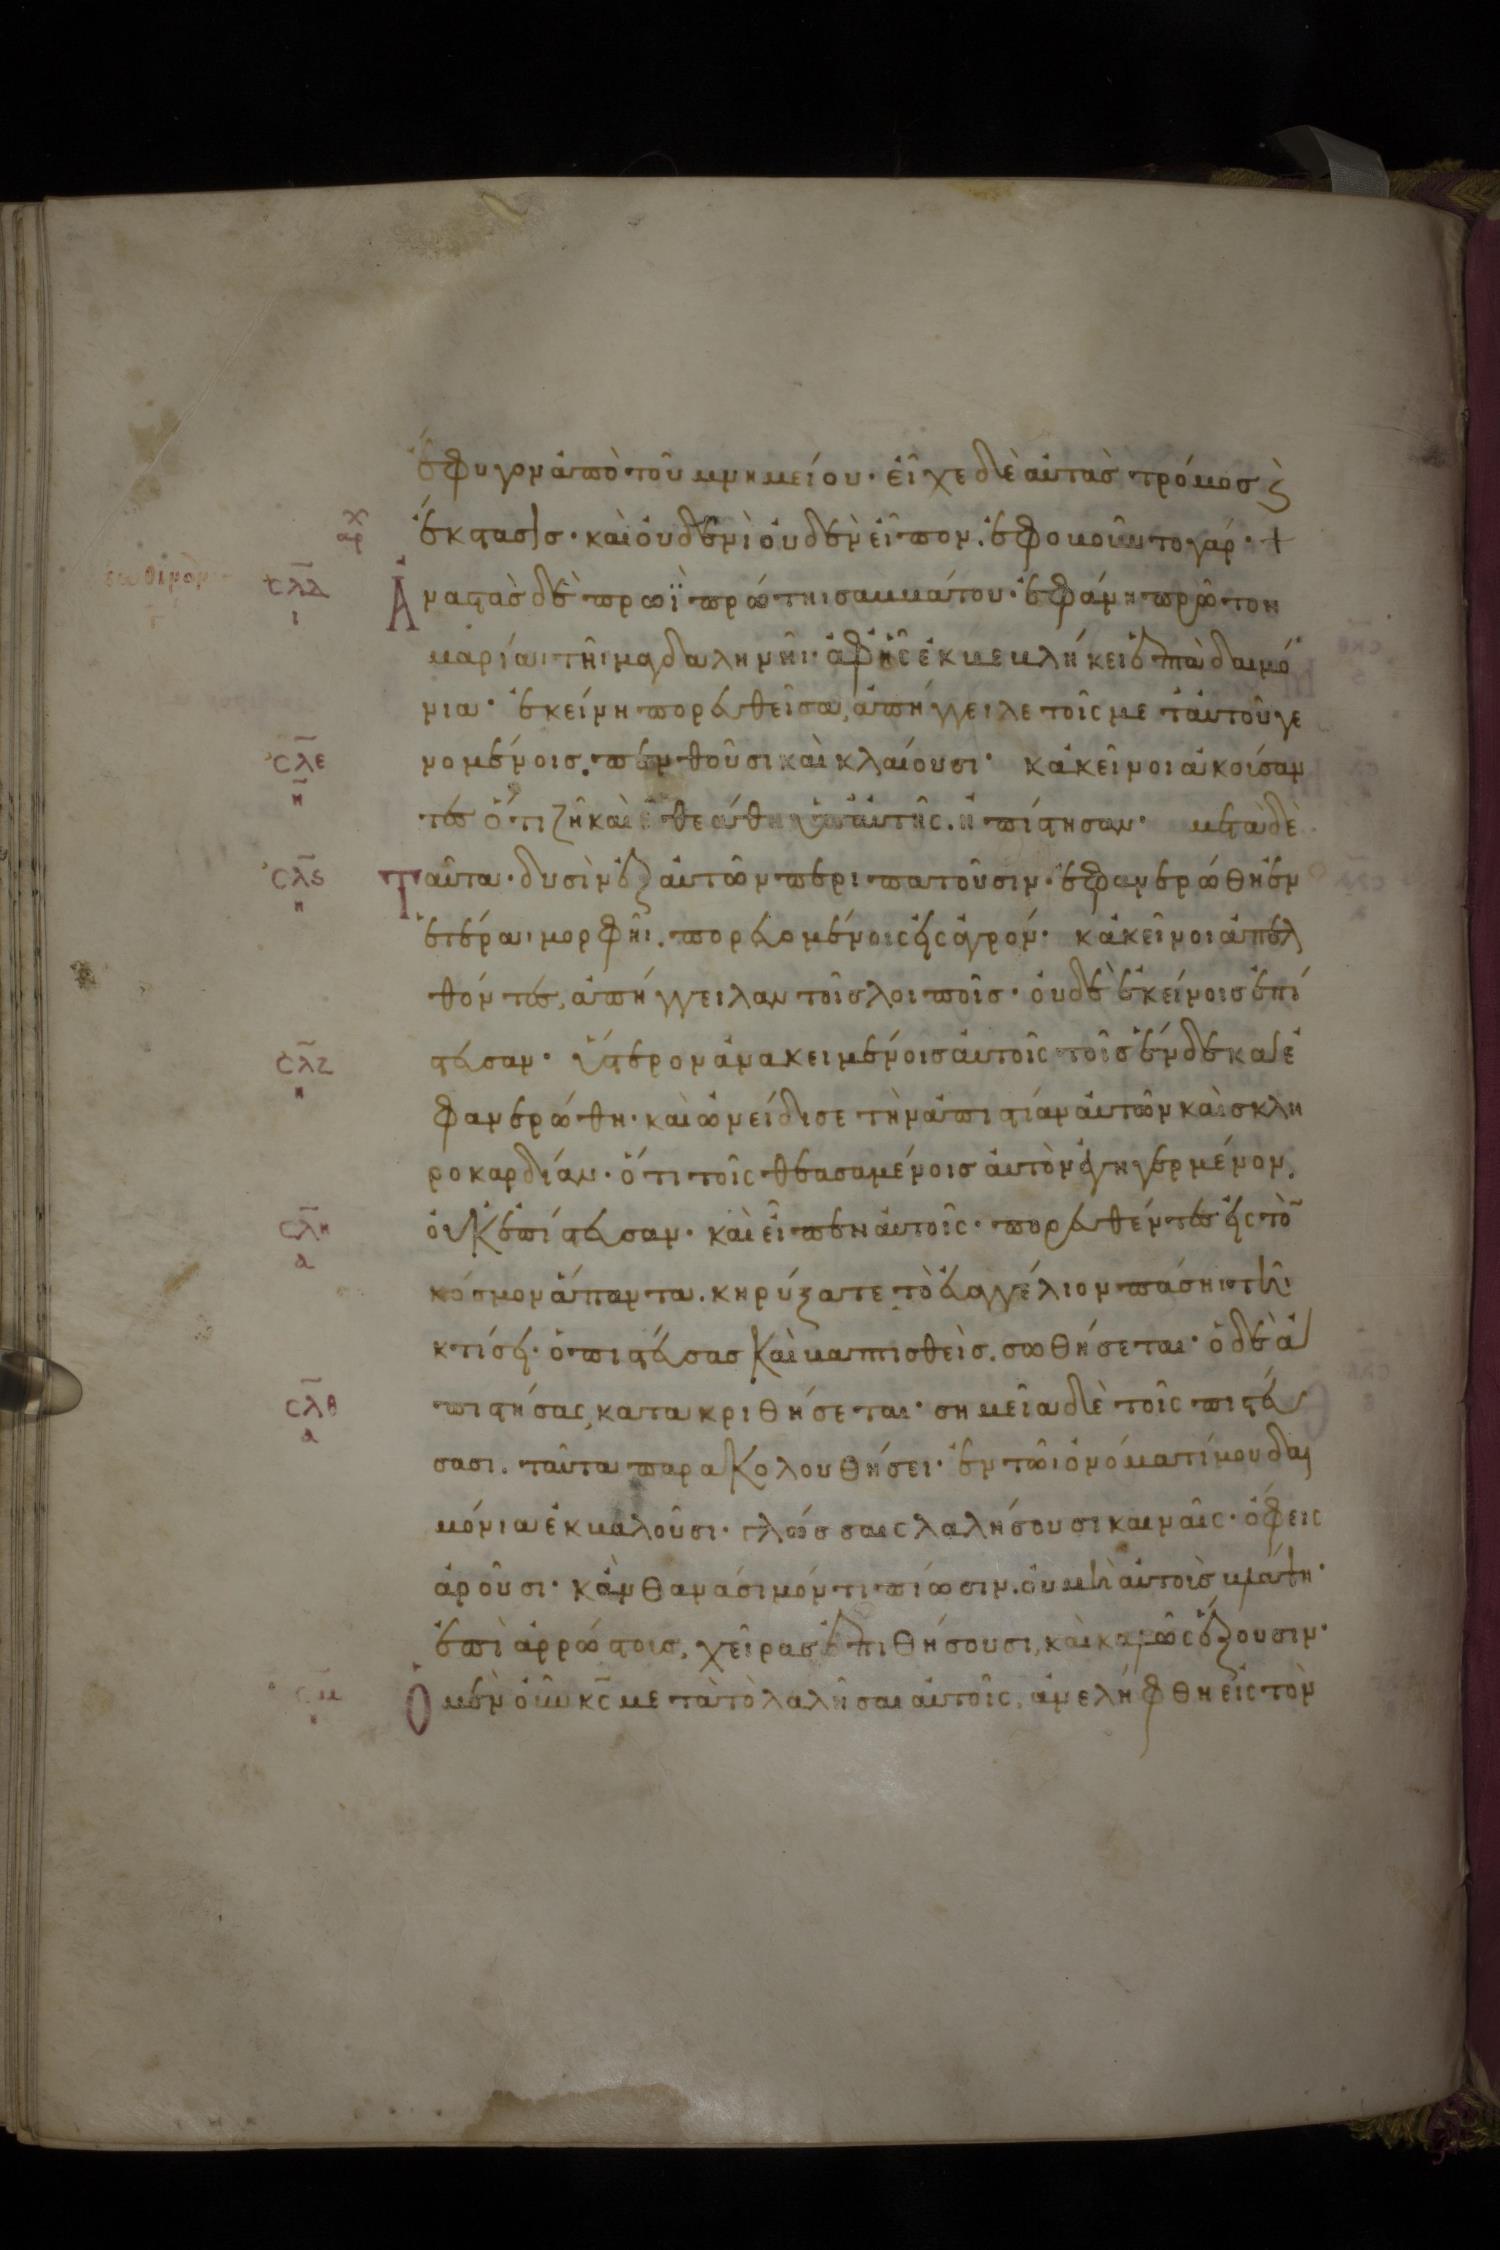 ἔφυγον ἀπὸ τοῦ μνημείου· εἶχε δὲ αὐτὰσ τρόμοσ ϗ
χ
αρ
ἔκστασισ· καὶ οὐδενὶ οὐδὲν εἶπον. ἐφοβοῦντο γάρ· +
σλδ
ι
Ἀναστὰσ δὲ πρωῒ πρώτηι σαββάτου· ἐφάνη πρῶτον
μαρίαι τῆι μαγδαληνῆι· ἀφ ἧς ἐκβεβλήκει ἑπτὰ δαιμό
νια· ἐκείνη πορευθεῖσα, ἀπήγγειλε τοῖς μετ αὐτοῦ γε
σλε
η
νομένοισ. πενθοῦσι καὶ κλαίουσι· κἀκεῖνοι ἀκούσαν
τεσ ὅτι ζῆ καὶ ἐθεάθη ὑπ αὐτῆς. ἠπίστησαν· μετὰ δὲ
σλς
η
Ταῦτα· δυσὶν ἐξ αὐτῶν περιπατοῦσιν· ἐφανερώθη ἐν
ἑτέραι μορφῆι. πορευομένοις εἰς ἀγρόν· κἀκεῖνοι ἀπελ
θόντεσ, ἀπήγγειλαν τοῖσ λοιποῖσ· οὐδὲ ἐκείνοισ ἐπί
σλζ
η
στευσαν· ὕστερον ἀνακειμένοισ αὐτοῖς τοῖσ ἕνδεκα ἐ
φανερώθη· καὶ ὠνείδισε τὴν ἀπιστίαν αὐτῶν καὶ σκλη
ροκαρδίαν· ὅτι τοῖς θεασαμένοισ αὐτὸν ἐγηγερμένον,
σλη
α
οὐκ ἐπίστευσαν· καὶ εἶπεν αὐτοῖς· πορευθέντεσ εἰς τὸ
κόσμον ἅπαντα. κηρύξατε τὸ εὐαγγέλιον πάσηι τῆι
κτίσει· ὁ πιστεύσασ καὶ βαπτισθεὶσ. σωθήσεται· ὁ δὲ ἀ
σλθ
α
πιστήσας, κατακριθήσεται· σημεῖα δὲ τοῖς πιστεύ
σασι. ταῦτα παρακολουθήσει· ἐν τῶι ὀνόματί μου δαι
μόνια ἐκβαλοῦσι· γλώσσαις λαλήσουσι καιναῖς· ὄφεις
ἀροῦσι· κἂν θανάσιμόν τι πίωσιν. οὐ μὴ αὐτοὺσ βλάψη·
ἐπὶ ἀρρώστουσ, χεῖρασ ἐπιθήσουσι, καὶ καλῶς ἕξουσιν·
σμ
Ὁ μὲν οὖν κς μετὰ τὸ λαλῆσαι αὐτοῖς, ἀνελήφθη εἰς τὸν